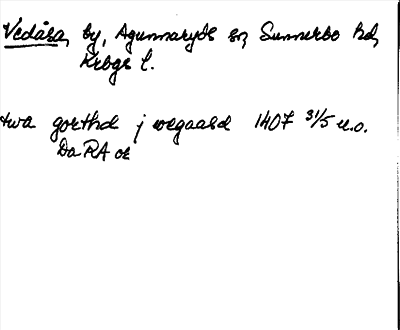 Vedåsa, by, Agunnaryds sn, Sunnerbo hd,
Krbgs l.
twa gorthd j wegaasd 1407 31/5 u.o.
Da RA or